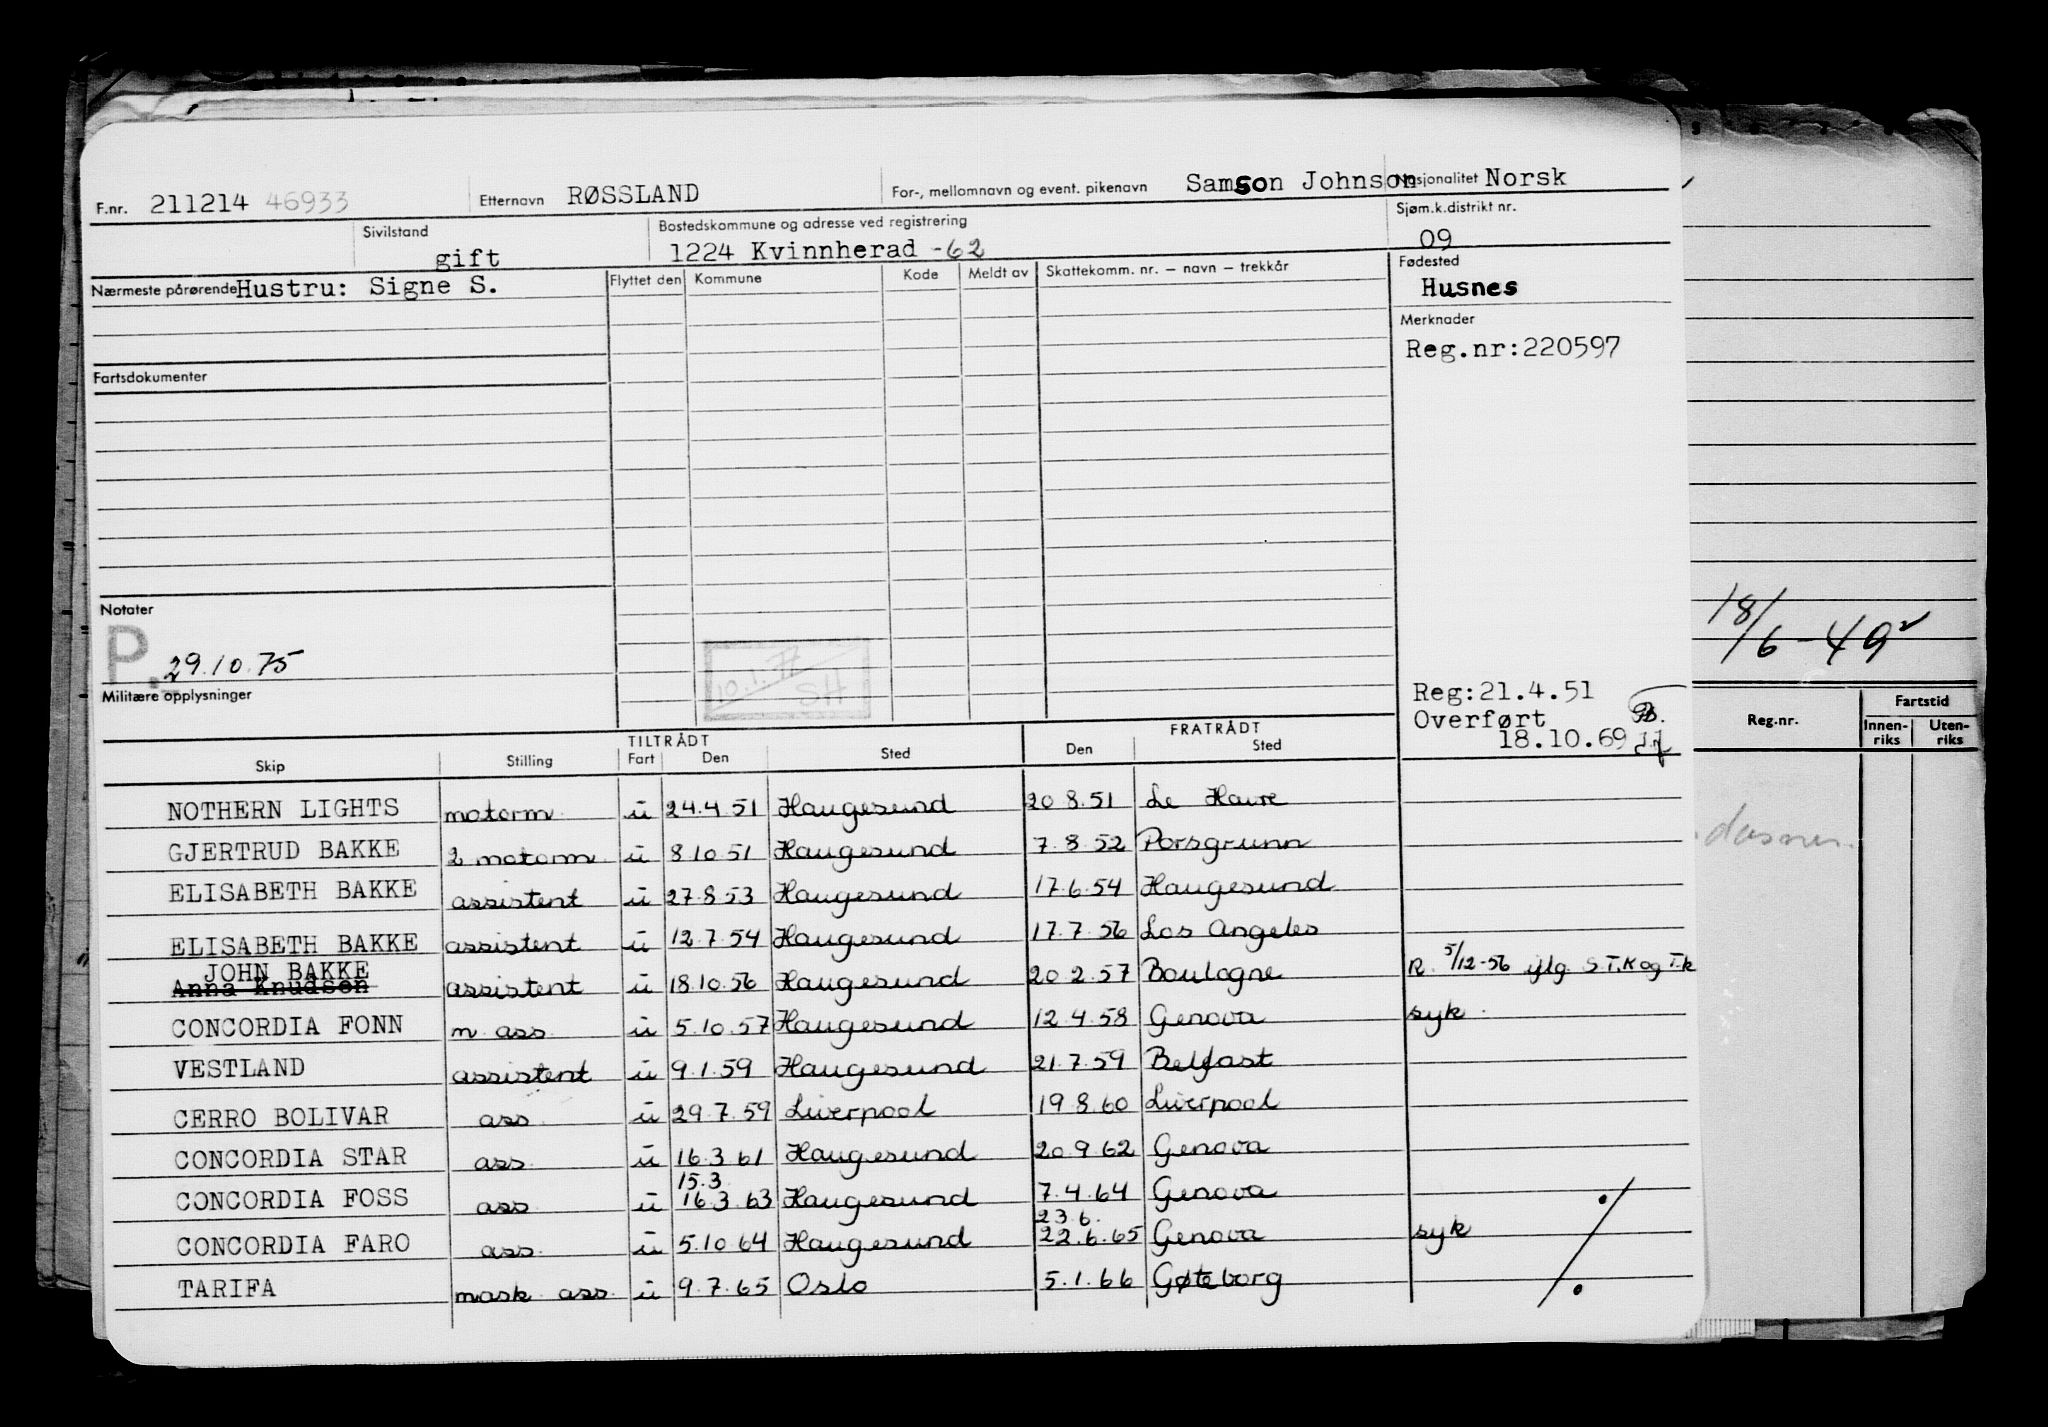 F.nr. 211214 46933 Etternavn RØSSLAND For-, mellomnavn og event. pikenavn Samson Johnson Nasjonalitet Norsk
Sivilstand gift Bostedskommune og adresse ved registrering 1224 Kvinnherad -62 Sjøm.k.distrikt nr. 09
Nærmeste pårørende Hustru: Signe S. Flyttet den Kommune Kode Meldt av Skattekomm. nr. – navn – trekkår Fødested
Husnes
Merknader
Reg.nr:220597
Fartsdokumenter
Notater
P. 29.10.75
10.1.77
SH
Militære opplysninger
Reg:21.4.51
Overført
18.10.69
TILTRÅDT FRATRÅDT
Skip Stilling Fart Den Sted Den Sted
NOTHERN LIGHTS motorm u 24.4 51 Haugesund 20 8.51 Le Havre
GJERTRUD BAKKE 2 motorm u 8 10.51 Haugesund 7.8.52 Porsgrunn
ELISABETH BAKKE assistent u 27.8 53 Haugesund 17.6.54 Haugesund
ELISABETH BAKKE assistent u 12.7.54 Haugesund 17.7.56 Los Angeles
JOHN BAKKE
Anna Knudsen assistent u 18.10.56 Haugesund 20 2.57 Boulogne R. 5/12-56 iflg. S.T.K og T.k
CONCORDIA FONN m. ass. u 5.10.57 Haugesund 12.4.58 Genova syk.
VESTLAND assistent u 9.1.59 Haugesund 21.7.59 Belfast
CERRO BOLIVAR ass. u 29.7.59 Liverpool 19.8.60 Liverpool
CONCORDIA STAR ass. u 16.3 61 Haugesund 20 9.62 Genova
15.3
CONCORDIA FOSS ass. u 16.3 63 Haugesund 7.4.64 Genova
23.6.
CONCORDIA FARO ass. u 5.10 64 Haugesund 22.6.65 Genova syk
TARIFA mask. ass. u 9.7.65 Oslo 5.1.66 Gøteborg
18/6-49
Reg.nr. Fartstid
Innen-
riks Uten-
riks